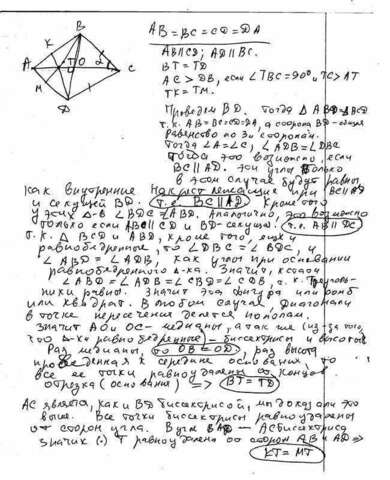 B
K
A T O 2 C
M 1
D
AB = BC = CD = DA
AB∥CD; AD∥BC.
BT = TD
AC > DB, если ∠TBC = 90° и TC > AT
TK = TM.
Проведем BD. Тогда Δ ABD = Δ BCD
т.к. AB = BC = CD = DA, а сторона BD - общая
Равенство по 3м сторонам.
Тогда ∠A = ∠C, ∠ADB = ∠DBC
Тогда это возможно, если
BC ∥ AD. Эти углы только
в этом случае будут равны
как внутренние накрест лежащие при BC ∥ AD
и секущей BD. т.е. BC ∥ AD Кроме того
у этих Δ-в ∠BDC = ∠ABD. Аналогично, это возможно
только если AB ∥ CD и BD - секущая. т.е. AB ∥ DC
т.к. Δ BCD и ABD, кроме того, ещё и
равнобедренные, то ∠DBC = ∠BDC, и
∠ABD = ∠ADB, как углы при основании
равнобедренного Δ-ка. Значит, кстати
∠ABD = ∠ADB = ∠CBD = ∠CDB, т.к. треуголь-
ники равны. Значит эта фигура или ромб
или квадрат. В любом случае, диагонали
в точке пересечения делятся пополам.
Значит AO и OC - медианы, а так же (из-за того,
что Δ-ки равнобедренные) - биссектрисы и высоты
Раз медианы, то OB = OD, раз высота
проведенная к середине основания, то
все ее точки равноудалены от концов
отрезка (основания) => BT = TD
AC является, как и BD биссектрисой, мы доказали это
выше. Все точки биссектрисы равноудалены
от сторон угла. В угле BAD - AC биссектриса
значит (·) T равноудалена от сторон AB и AD =>
KT = MT